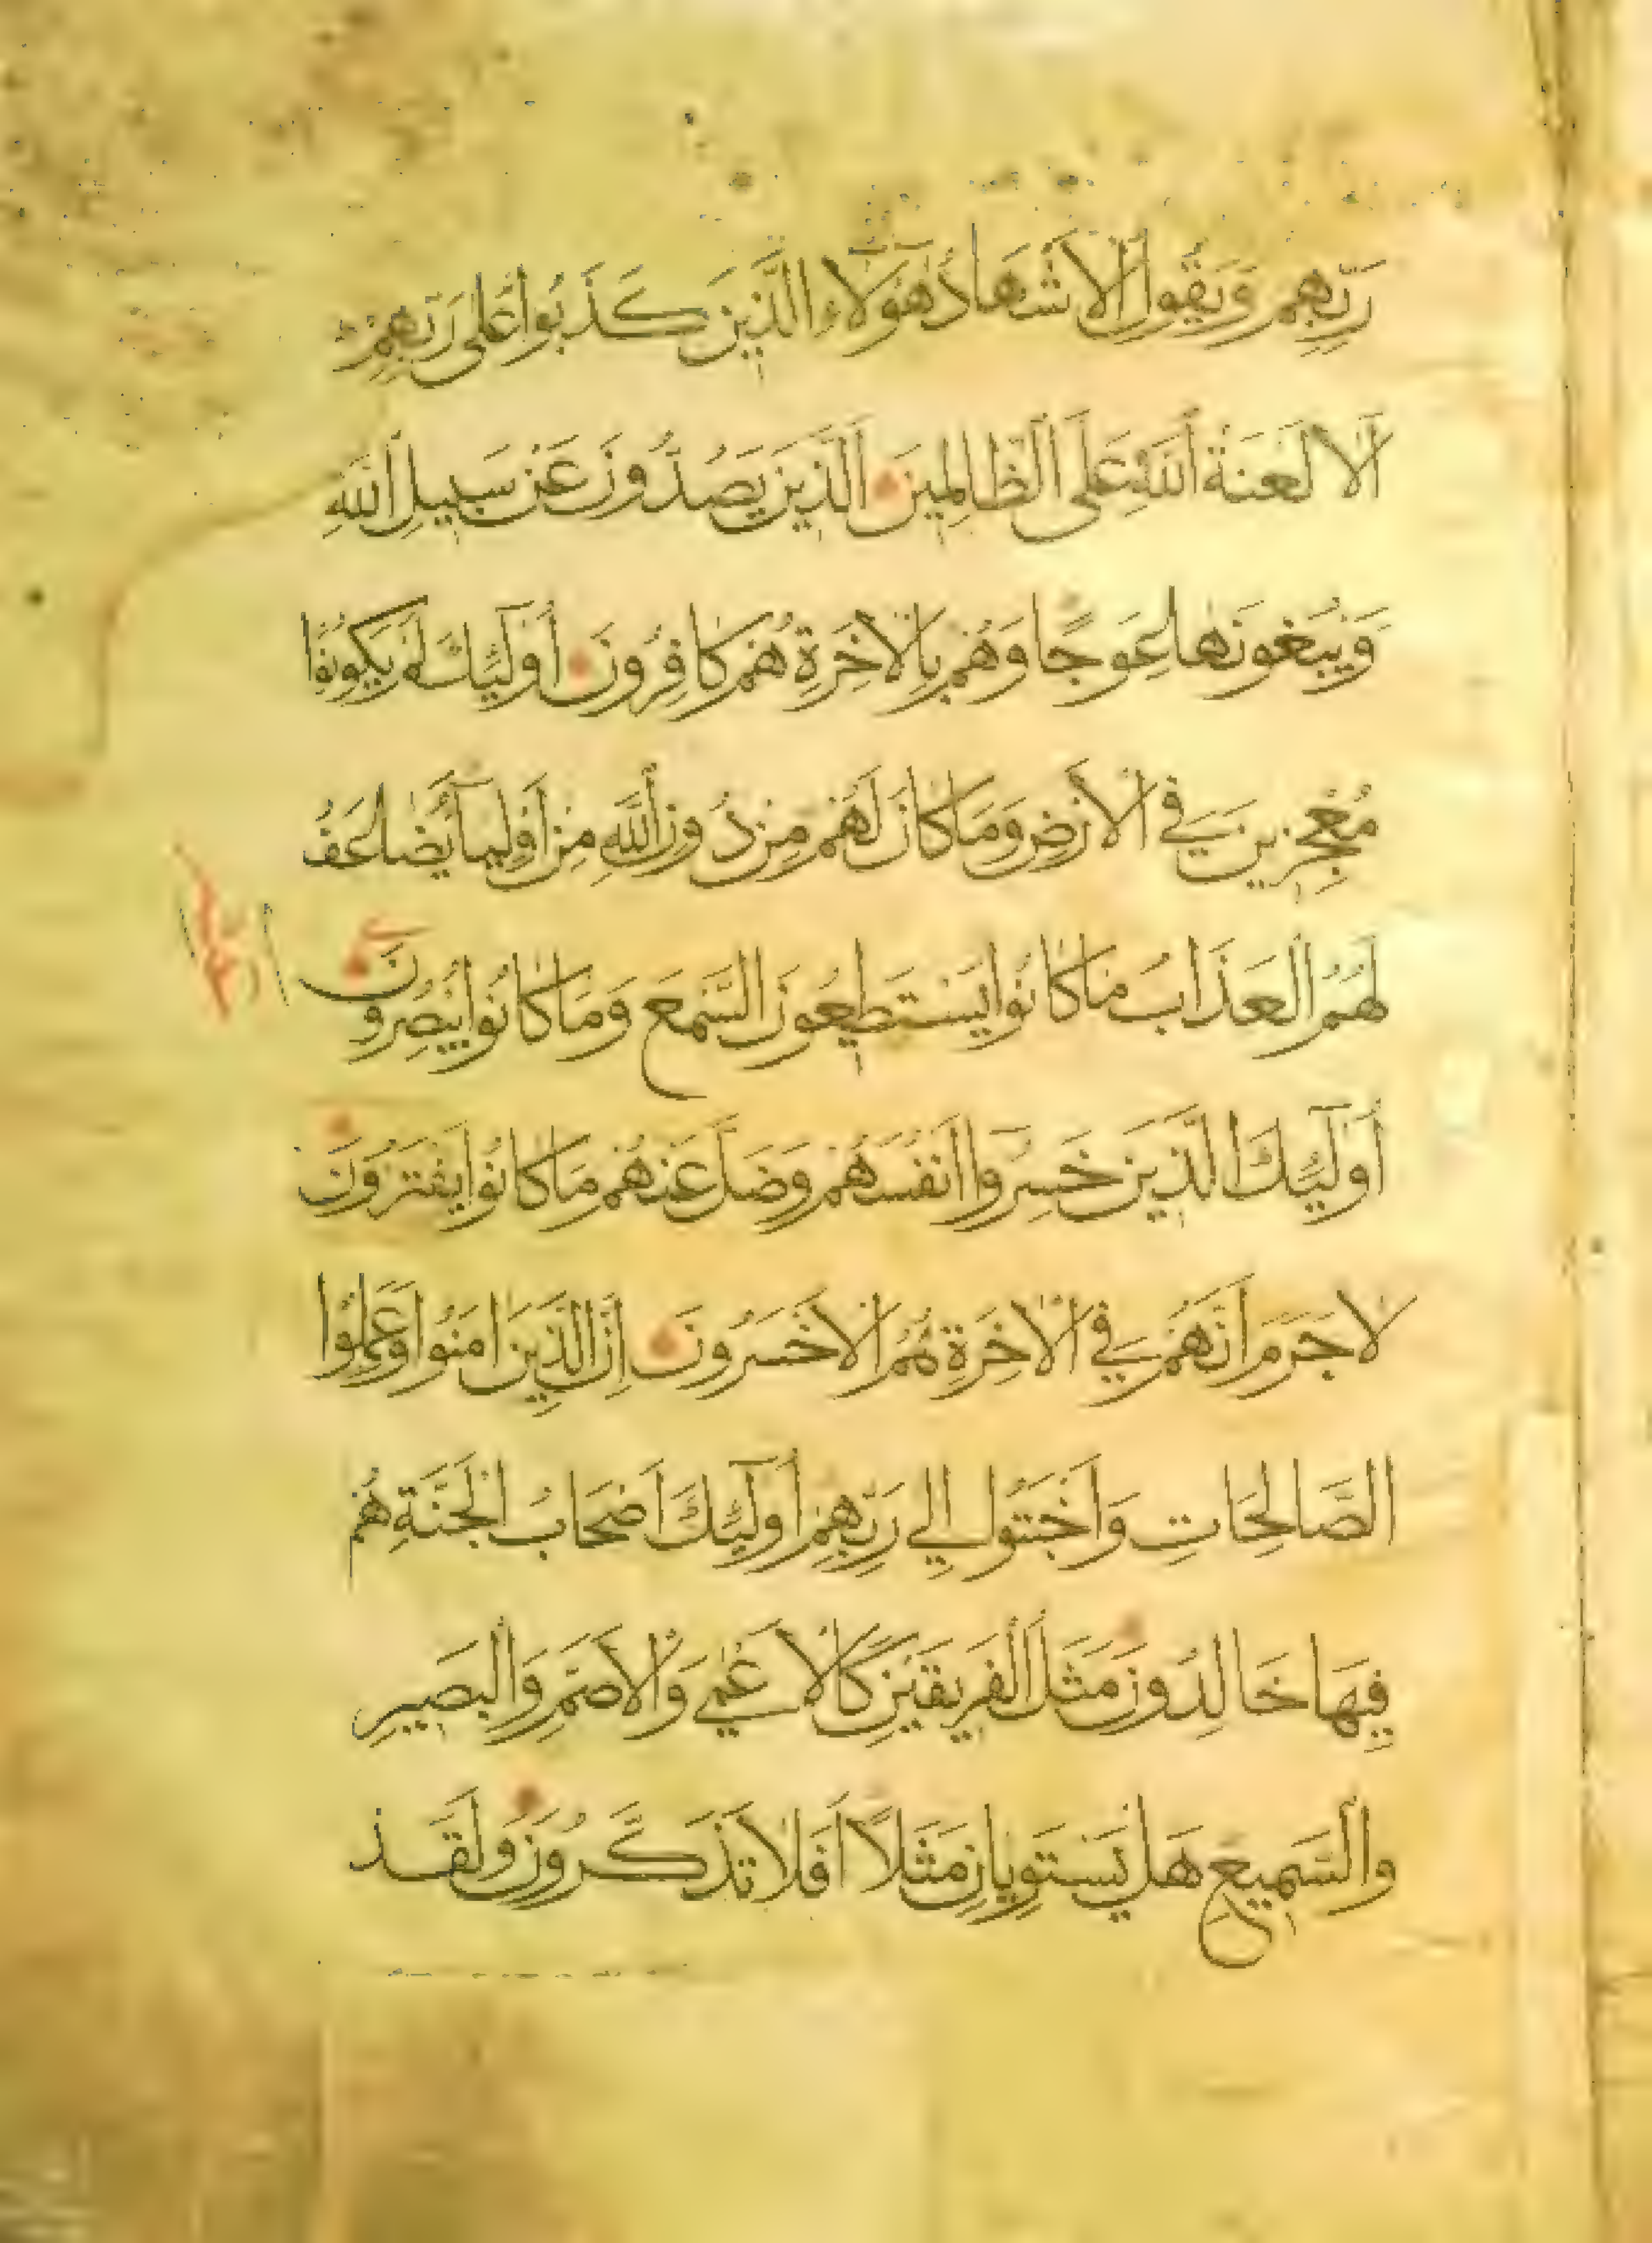 رَبِّهِمْ وَيَقُولُ الْأَشْهَادُ هَٰؤُلَاءِ الَّذِينَ كَذَبُوا عَلَىٰ رَبِّهِمْ
أَلَا لَعْنَةُ اللَّهِ عَلَى الظَّالِمِينَ الَّذِينَ يَصُدُّونَ عَنْ سَبِيلِ اللَّهِ
وَيَبْغُونَهَا عِوَجًا وَهُمْ بِالْآخِرَةِ هُمْ كَافِرُونَ أُولَٰئِكَ لَمْ يَكُونُوا
مُعْجِزِينَ فِي الْأَرْضِ وَمَا كَانَ لَهُمْ مِنْ دُونِ اللَّهِ مِنْ أَوْلِيَاءَ يُضَاعَفُ
لَهُمُ الْعَذَابُ مَا كَانُوا يَسْتَطِيعُونَ السَّمْعَ وَمَا كَانُوا يُبْصِرُونَ
أُولَٰئِكَ الَّذِينَ خَسِرُوا أَنْفُسَهُمْ وَضَلَّ عَنْهُمْ مَا كَانُوا يَفْتَرُونَ
لَا جَرَمَ أَنَّهُمْ فِي الْآخِرَةِ هُمُ الْأَخْسَرُونَ إِنَّ الَّذِينَ آمَنُوا وَعَمِلُوا
الصَّالِحَاتِ وَأَخْبَتُوا إِلَىٰ رَبِّهِمْ أُولَٰئِكَ أَصْحَابُ الْجَنَّةِ هُمْ
فِيهَا خَالِدُونَ مَثَلُ الْفَرِيقَيْنِ كَالْأَعْمَىٰ وَالْأَصَمِّ وَالْبَصِيرِ
وَالسَّمِيعِ هَلْ يَسْتَوِيَانِ مَثَلًا أَفَلَا تَذَكَّرُونَ وَلَقَدْ